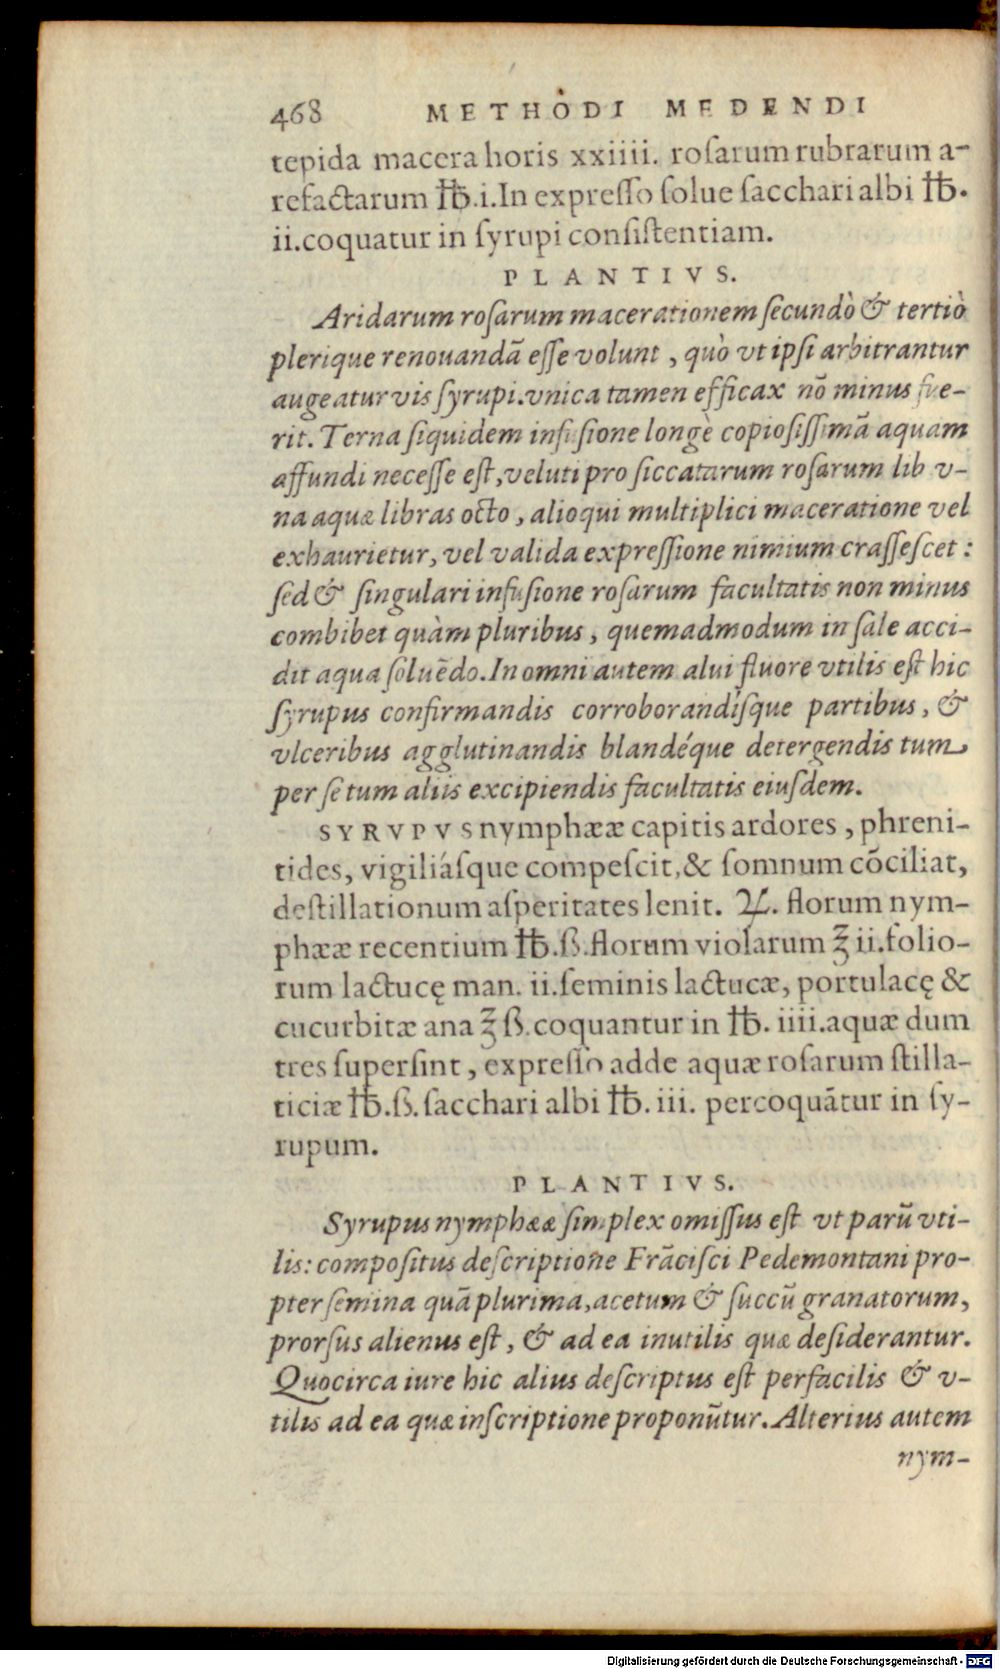 468 METHODI MEDENDI
tepida macera horis xxiiii. roſarum rubrarum a-
refactarum ℔.i.In expreſſo ſolue ſacchari albi ℔.
ii.coquatur in ſyrupi conſiſtentiam.
PLANTIVS.
Aridarum roſarum macerationem ſecundò & tertiò
plerique renouandã eſſe volunt, quò vt ipſi arbitrantur
augeatur vis ſyrupi.vnica tamen efficax nõ minus fue-
rit. Terna ſiquidem infuſione longè copioſiſſimã aquam
affundi neceſſe eſt,veluti pro ſiccatarum roſarum lib v-
na aquæ libras octo, alioqui multiplici maceratione vel
exhaurietur, vel valida expreſſione nimium craſſeſcet:
ſed & ſingulari infuſione roſarum facultatis non minus
combibet quàm pluribus, quemadmodum in ſale acci-
dit aqua ſoluẽdo.In omni autem alui fluore vtilis eſt hic
ſyrupus confirmandis corroborandíſque partibus, &
vlceribus agglutinandis blandéque detergendis tum
per ſe tum aliis excipiendis facultatis eiuſdem.
SYRVPVS nymphææ capitis ardores, phreni-
tides, vigiliáſque compeſcit,& ſomnum cõciliat,
deſtillationum aſperitates lenit. ♃. florum nym-
phææ recentium ℔.ß.florum violarum ʒ ii.folio-
rum lactucę man. ii.ſeminis lactucæ, portulacę &
cucurbitæ ana ʒ ß.coquantur in ℔. iiii.aquæ dum
tres ſuperſint, expreſſo adde aquæ roſarum ſtilla-
ticiæ ℔.ß. ſacchari albi ℔. iii. percoquãtur in ſy-
rupum.
PLANTIVS.
Syrupus nymphææ ſimplex omiſſus eſt vt parũ vti-
lis: compoſitus deſcriptione Frãciſci Pedemontani pro-
pter ſemina quã plurima,acetum & ſuccũ granatorum,
prorſus alienus eſt, & ad ea inutilis quæ deſiderantur.
Quocirca iure hic alius deſcriptus eſt perfacilis & v-
tilis ad ea quæ inſcriptione proponũtur. Alterius autem
nym-
Digitalisierung gefördert durch die Deutsche Forschungsgemeinschaft - DFG